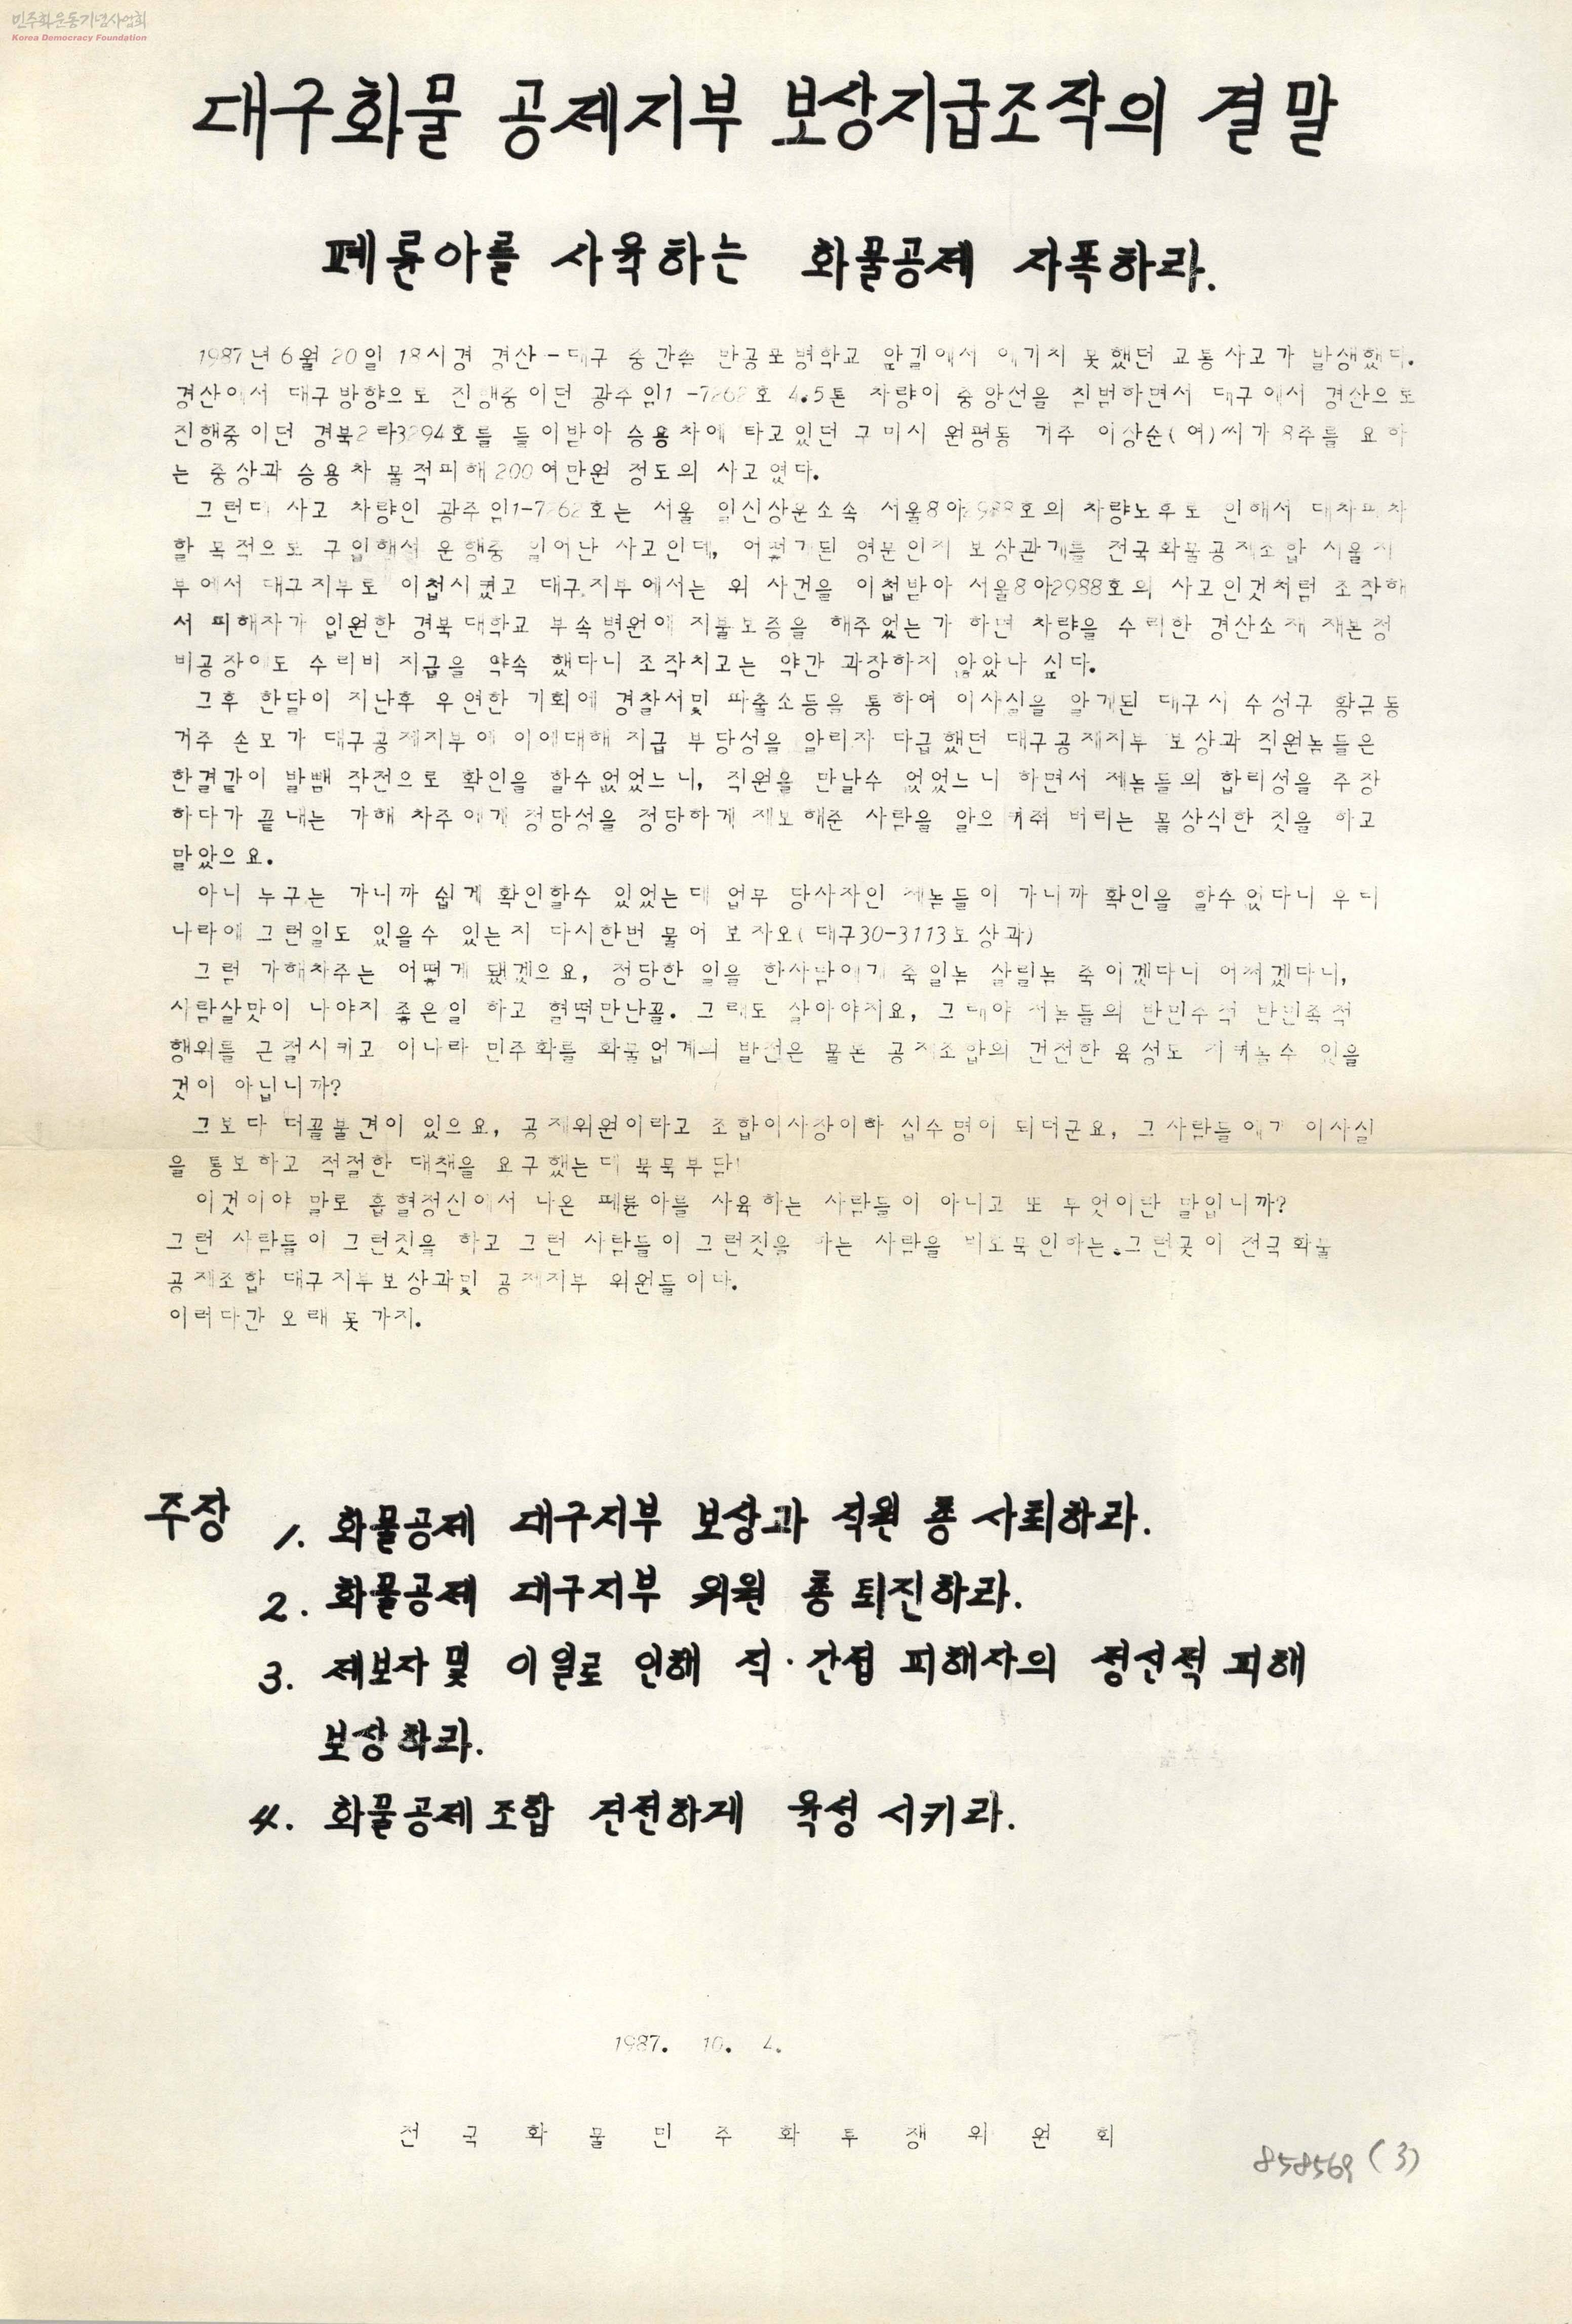 민주화운동기념사업회
Korea Democracy Foundation
대구화물 공제지부 보상지급조작의 결말
페륜아를 사육하는 화물공제 자폭하라.
1987년 6월 20일 18시경 경산-대구 중간쯤 반공포병학교 앞길에서 예기치 못했던 교통사고가 발생했다.
경산에서 대구방향으로 진행중이던 광주임1-7262호 4.5톤 차량이 중앙선을 침범하면서 대구에서 경산으로
진행중이던 경북2라3294호를 들이받아 승용차에 타고있던 구미시 원평동 거주 이상순(여)씨가 8주를 요하
는 중상과 승용차 물적피해 200여만원 정도의 사고였다.
그런데 사고 차량인 광주임1-7262호는 서울 일신상운소속 서울8아2988호의 차량노후로 인해서 대차폐차
할 목적으로 구입해서 운행중 일어난 사고인데, 어떻게된 영문인지 보상관계를 전국화물공제조합 서울지
부에서 대구지부로 이첩시켰고 대구지부에서는 위 사건을 이첩받아 서울8아2988호의 사고인것처럼 조작해
서 피해자가 입원한 경북대학교 부속병원에 지불보증을 해주었는가 하면 차량을 수리한 경산소재 재본정
비공장에도 수리비 지급을 약속 했다니 조작치고는 약간 과장하지 않았나 싶다.
그후 한달이 지난후 우연한 기회에 경찰서및 파출소등을 통하여 이사실을 알게된 대구시 수성구 황금동
거주 손모가 대구공제지부에 이에대해 지급 부당성을 알리자 다급했던 대구공제지부 보상과 직원놈들은
한결같이 발뺌 작전으로 확인을 할수없었느니, 직원을 만날수 없었느니 하면서 제놈들의 합리성을 주장
하다가 끝내는 가해 차주에게 정당성을 정당하게 제보해준 사람을 알으켜줘 버리는 몰상식한 짓을 하고
말았으요.
아니 누구는 가니까 쉽게 확인할수 있었는데 업무 당사자인 제놈들이 가니까 확인을 할수없다니 우리
나라에 그런일도 있을수 있는지 다시한번 물어 보자요(대구30-3113보상과)
그럼 가해차주는 어떻게 됐겠으요, 정당한 일을 한사람에게 죽일놈 살릴놈 죽이겠다니 어쩌겠다니,
사람살맛이 나야지 좋은일 하고 혈떡만난꼴. 그래도 살아야지요, 그래야 저놈들의 반민주적 반민족적
행위를 근절시키고 이나라 민주화를 화물업계의 발전은 물론 공제조합의 건전한 육성도 지켜놀수 있을
것이 아닙니까?
그보다 더꼴불견이 있으요, 공제위원이라고 조합이사장이하 십수명이 되더군요, 그사람들에게 이사실
을 통보하고 적절한 대책을 요구했는데 묵묵부답!
이것이야 말로 흡혈정신에서 나온 페륜아를 사육하는 사람들이 아니고 또 무엇이란 말입니까?
그런 사람들이 그런짓을 하고 그런 사람들이 그런짓을 하는 사람을 비호묵인하는.그런곳이 전국화물
공제조합 대구지부보상과및 공제지부 위원들이다.
이러다간 오래 못 가지.
주장 1. 화물공제 대구지부 보상과 직원 총 사퇴하라.
2. 화물공제 대구지부 위원 총 퇴진하라.
3. 제보자 및 이 일로 인해 직·간접 피해자의 정신적 피해
보상하라.
4. 화물공제조합 건전하게 육성 시키라.
1987. 10. 4.
전국화물민주화투쟁위원회
858569 (3)